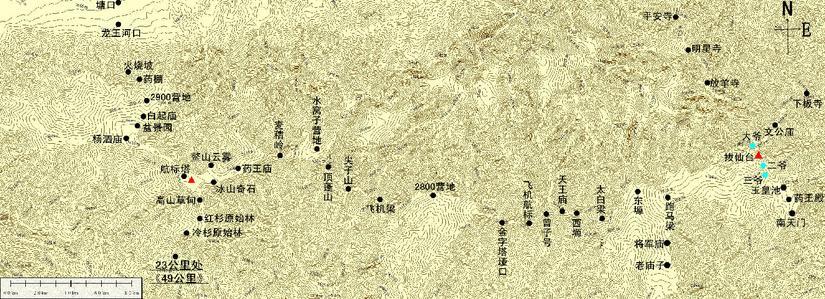 塘口
龙王河口
火烧坡
药棚
2900营地
白起庙
盆景园
杨泗庙
鳌山云雾
药王庙
航标塔
冰山奇石
高山草甸
红杉原始林
冷杉原始林
23公里处
《49公里》
麦秸岭
水窝子营地
顶蓬山
尖子山
飞机梁
2800营地
金字塔垭口
飞机航标
雷子号
天王庙
西源
太白梁
东塬
跑马梁
将军庙
老庙子
平安寺
明星寺
放羊寺
N
E
下板寺
文公庙
大爷
拔仙台
二爷
三爷
玉皇池
药王殿
南天门